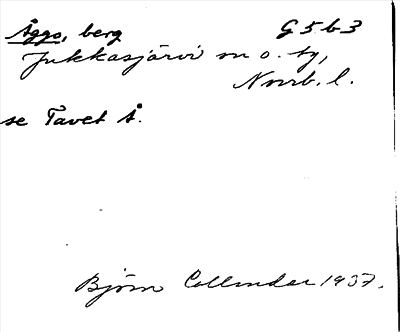 Åggo, berg G5b3
Jukkasjärvi sn o. tg,
Norrb. l.
se Tavet Å.
Björn Collinder 1937.